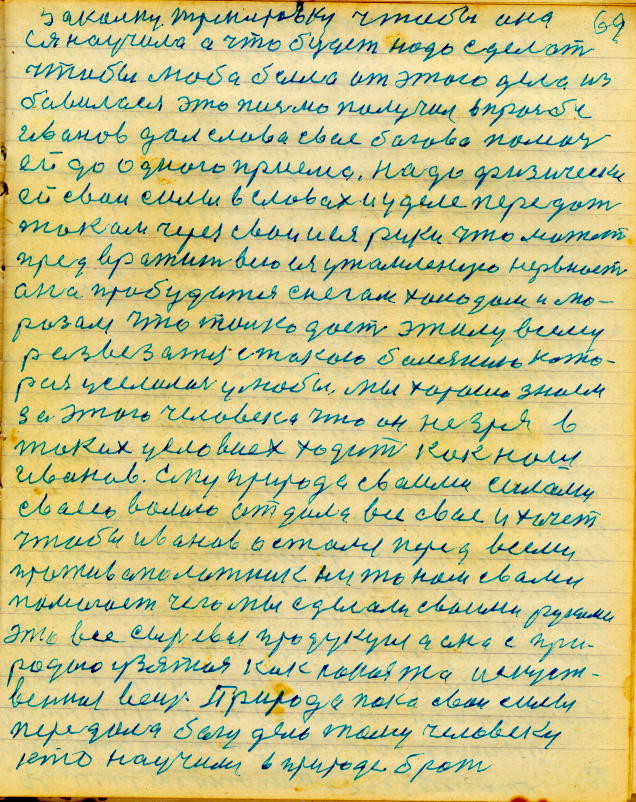 закалку тренеровку чтобы она 69
ся научила а что будет надо сделат
чтобы люба была от этого дела из
бавилася это прямо получил впрозбе
иванов дал слова свае багова помоч
ей до одного приема. надо физически
ей сваи силы в словах и уделе передат
током через сваи ися руки что может
предвратит всю ея утамленую нервност
она пробудится снегам холодом и мо-
розам что толко даст этому всему
развезатся стакою болезнию кото-
рая уселалая улюбы, мы харашо знаем
за этого человека что он незря в
таких условиех ходит как наш
иванов. ему природа сваими силами
сваею волею отдала все свае и хочет
чтобы иванов остался перед всеми
нитонаш сваими
помагает чего мы сделали сваими руками
это все сыревые продукты а она с при-
родою узятая как такаяжа искуст-
веннае вещ. Природа пока сваи силы
передала богу дель тому человеку
кто научился в природе брат